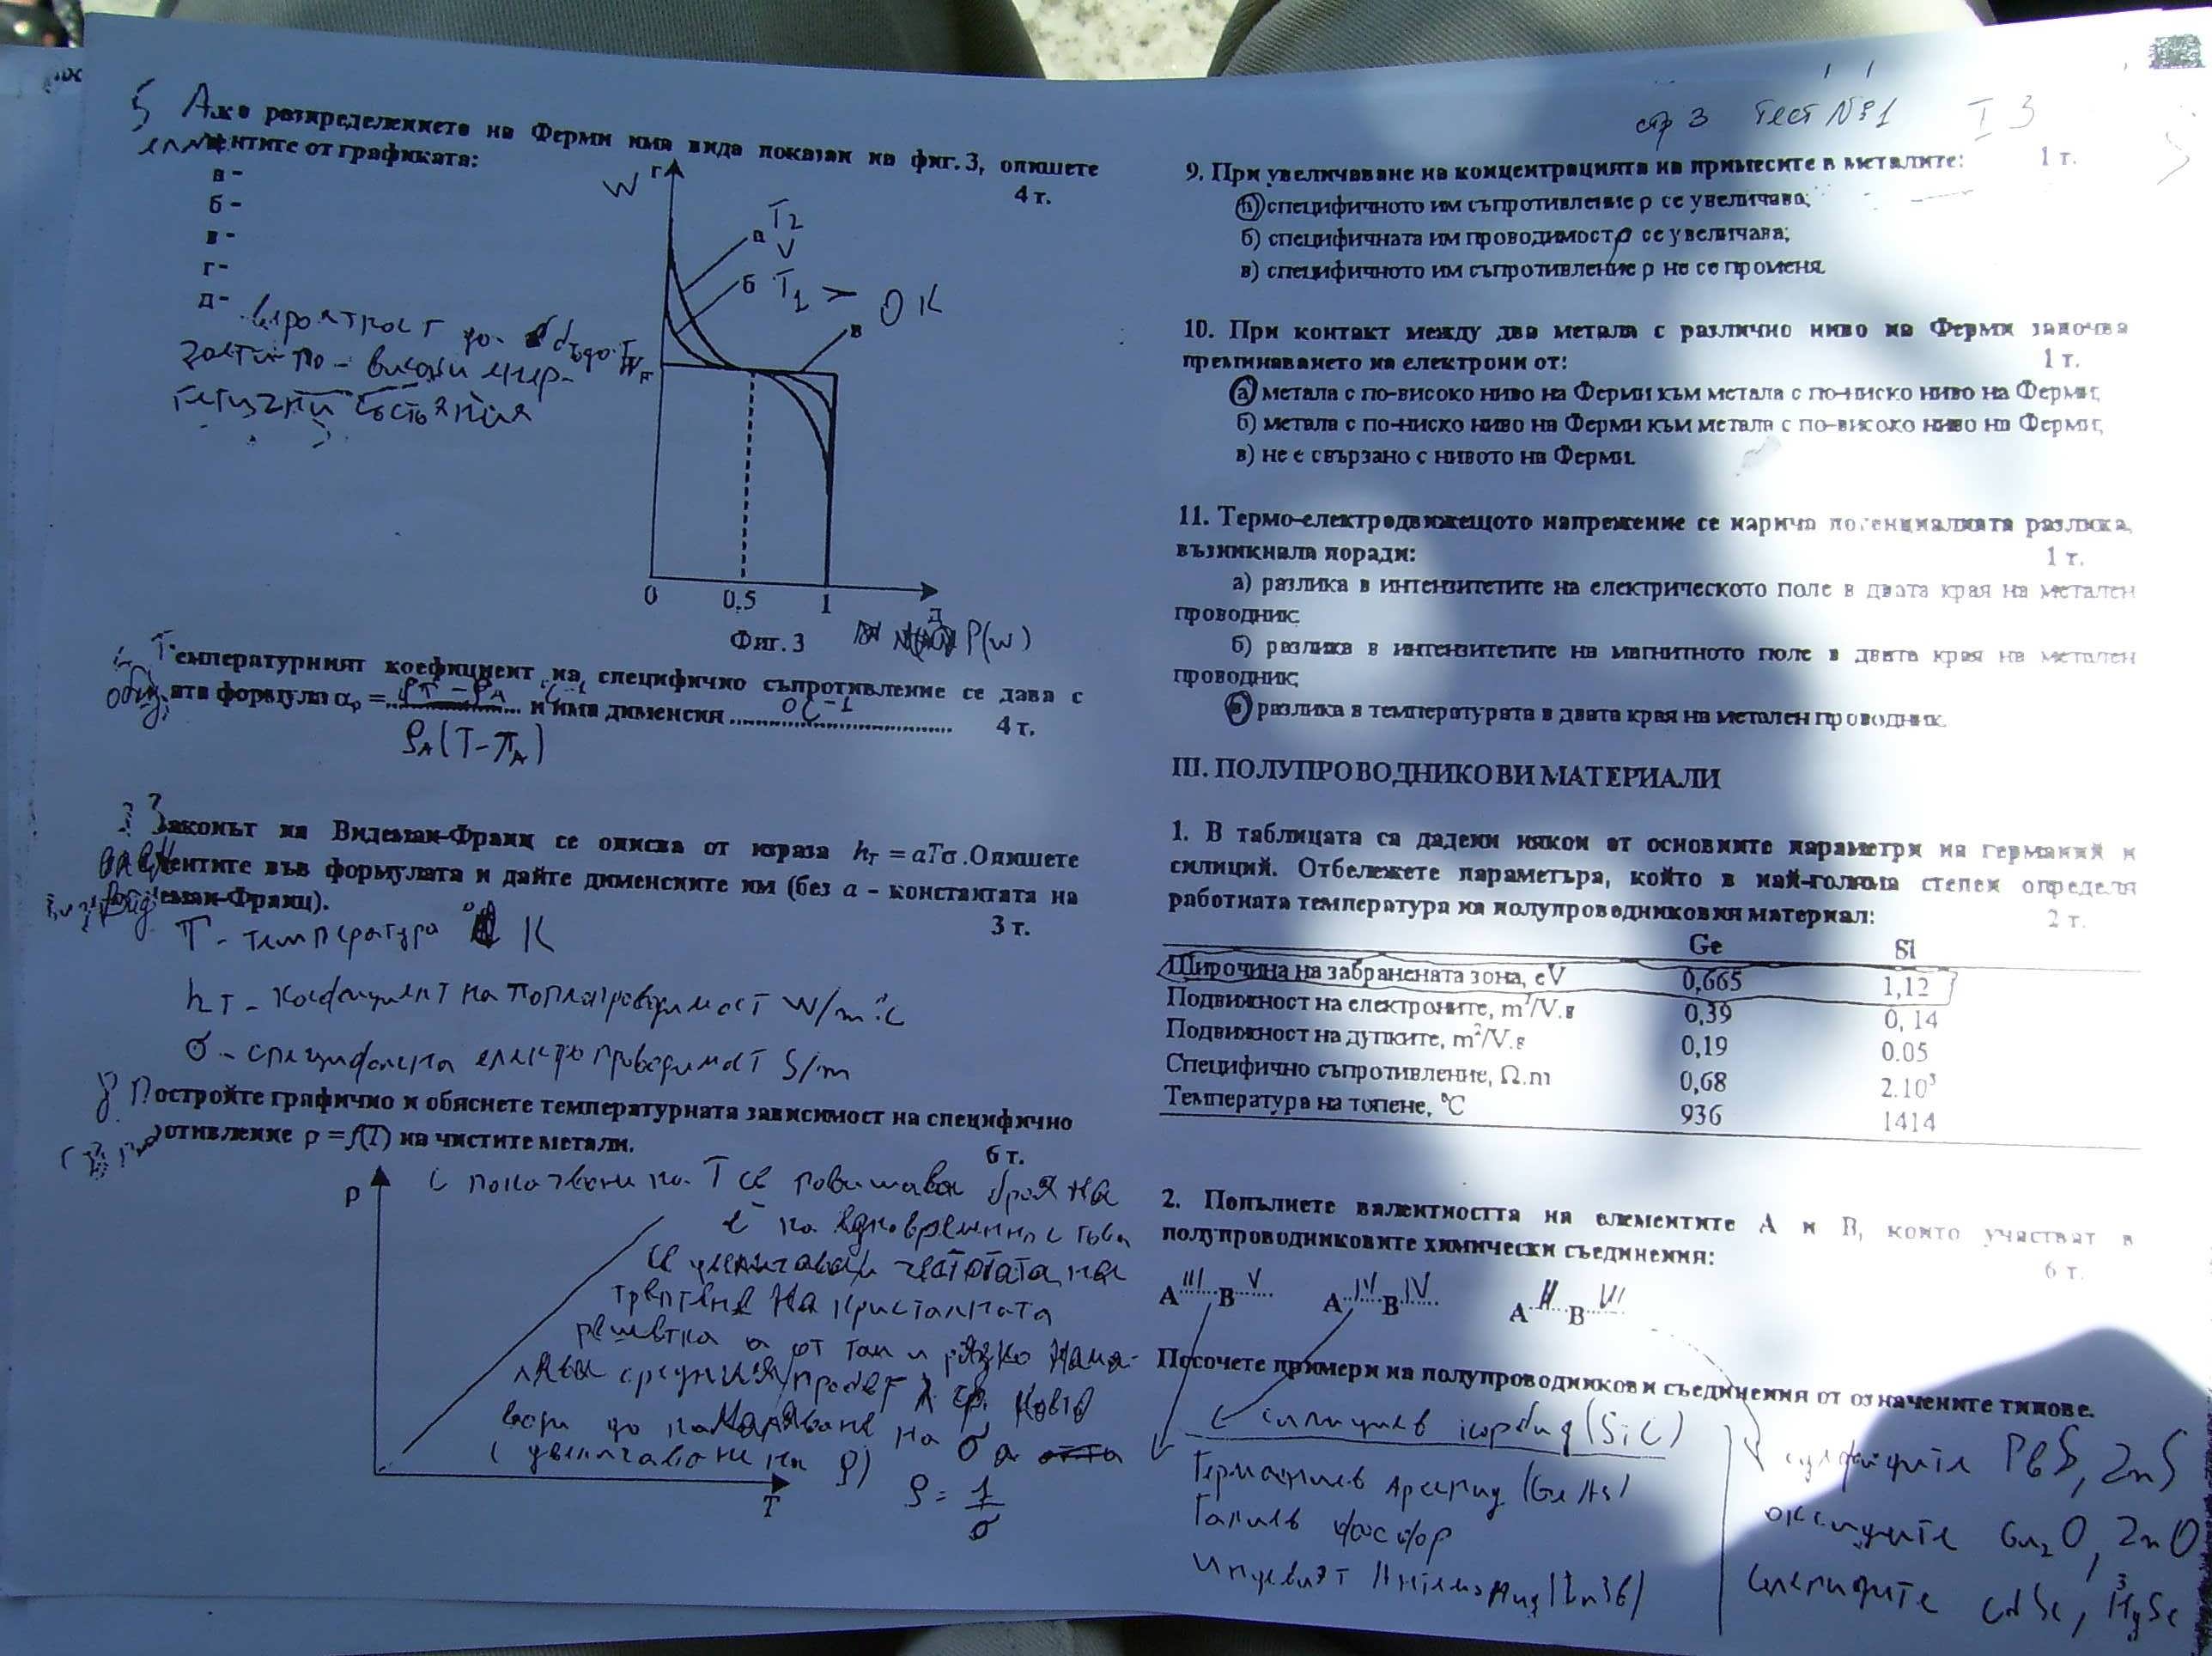 стр 3 Тест №1 I 3
5 Ако разпределението на Ферми има вида показан на фиг. 3, опишете
елементите от графиката: 4 т.
а -
б -
в -
г -
д -
вероятност
по-високи енер-
гетични състояния
W г
а T2
б T1 > 0 K
в
WF
0 0,5 1 д
Фиг. 3 P(w)
Температурният коефициент на специфично съпротивление се дава с
формула αρ = ρT - ρA и има дименсия °C-1 4 т.
ρA(T-TA)
Законът на Видеман-Франц се описва от израза hT = aTσ. Опишете
елементите във формулата и дайте дименсиите им (без a - константата на
Видеман-Франц). 3 т.
T - температура K
hT - коефициент на топлопроводимост W/m°C
σ - специфична електропроводимост S/m
8 Постройте графично и обяснете температурната зависимост на специфично
съпротивление ρ = f(T) на чистите метали. 6 т.
ρ
С на T се повишава броя на
е на едновременно с това
се увеличава и честотата на
трептене на кристалната
решетка а от там и рязко нама-
лява средния пробег λ ср.
води до намаляване на σ а
(увеличаване на ρ)
T
ρ = 1/σ
9. При увеличаване на концентрацията на примесите в металите: 1 т.
а) специфичното им съпротивление ρ се увеличава;
б) специфичната им проводимост σ се увеличава;
в) специфичното им съпротивление ρ не се променя.
10. При контакт между два метала с различно ниво на Ферми започва
преминаването на електрони от: 1 т.
а) метала с по-високо ниво на Ферми към метала с по-ниско ниво на Ферми;
б) метала с по-ниско ниво на Ферми към метала с по-високо ниво на Ферми;
в) не е свързано с нивото на Ферми.
11. Термо-електродвижещото напрежение се нарича потенциалната разлика,
възникнала поради: 1 т.
а) разлика в интензитетите на електрическото поле в двата края на метален
проводник;
б) разлика в интензитетите на магнитното поле в двата края на метален
проводник;
в) разлика в температурата в двата края на метален проводник.
III. ПОЛУПРОВОДНИКОВИ МАТЕРИАЛИ
1. В таблицата са дадени някои от основните параметри на германий и
силиций. Отбележете параметъра, който в най-голяма степен определя
работната температура на полупроводниковия материал: 2 т.
Ge Si
Широчина на забранената зона, eV 0,665 1,12
Подвижност на електроните, m²/V.s 0,39 0,14
Подвижност на дупките, m²/V.s 0,19 0.05
Специфично съпротивление, Ω.m 0,68 2.10³
Температура на топене, °C 936 1414
2. Попълнете валентността на елементите А и В, които участват в
полупроводниковите химически съединения: 6 т.
A III B V A IV B IV A II B VI
Посочете примери на полупроводникови съединения от означените типове.
силициев карбид (SiC)
Германиев Арсенид (GeAs)
Галиев фосфор
сулфидите PbS, ZnS
оксидите Cu2O, ZnO
селенидите CdSe, HgSe